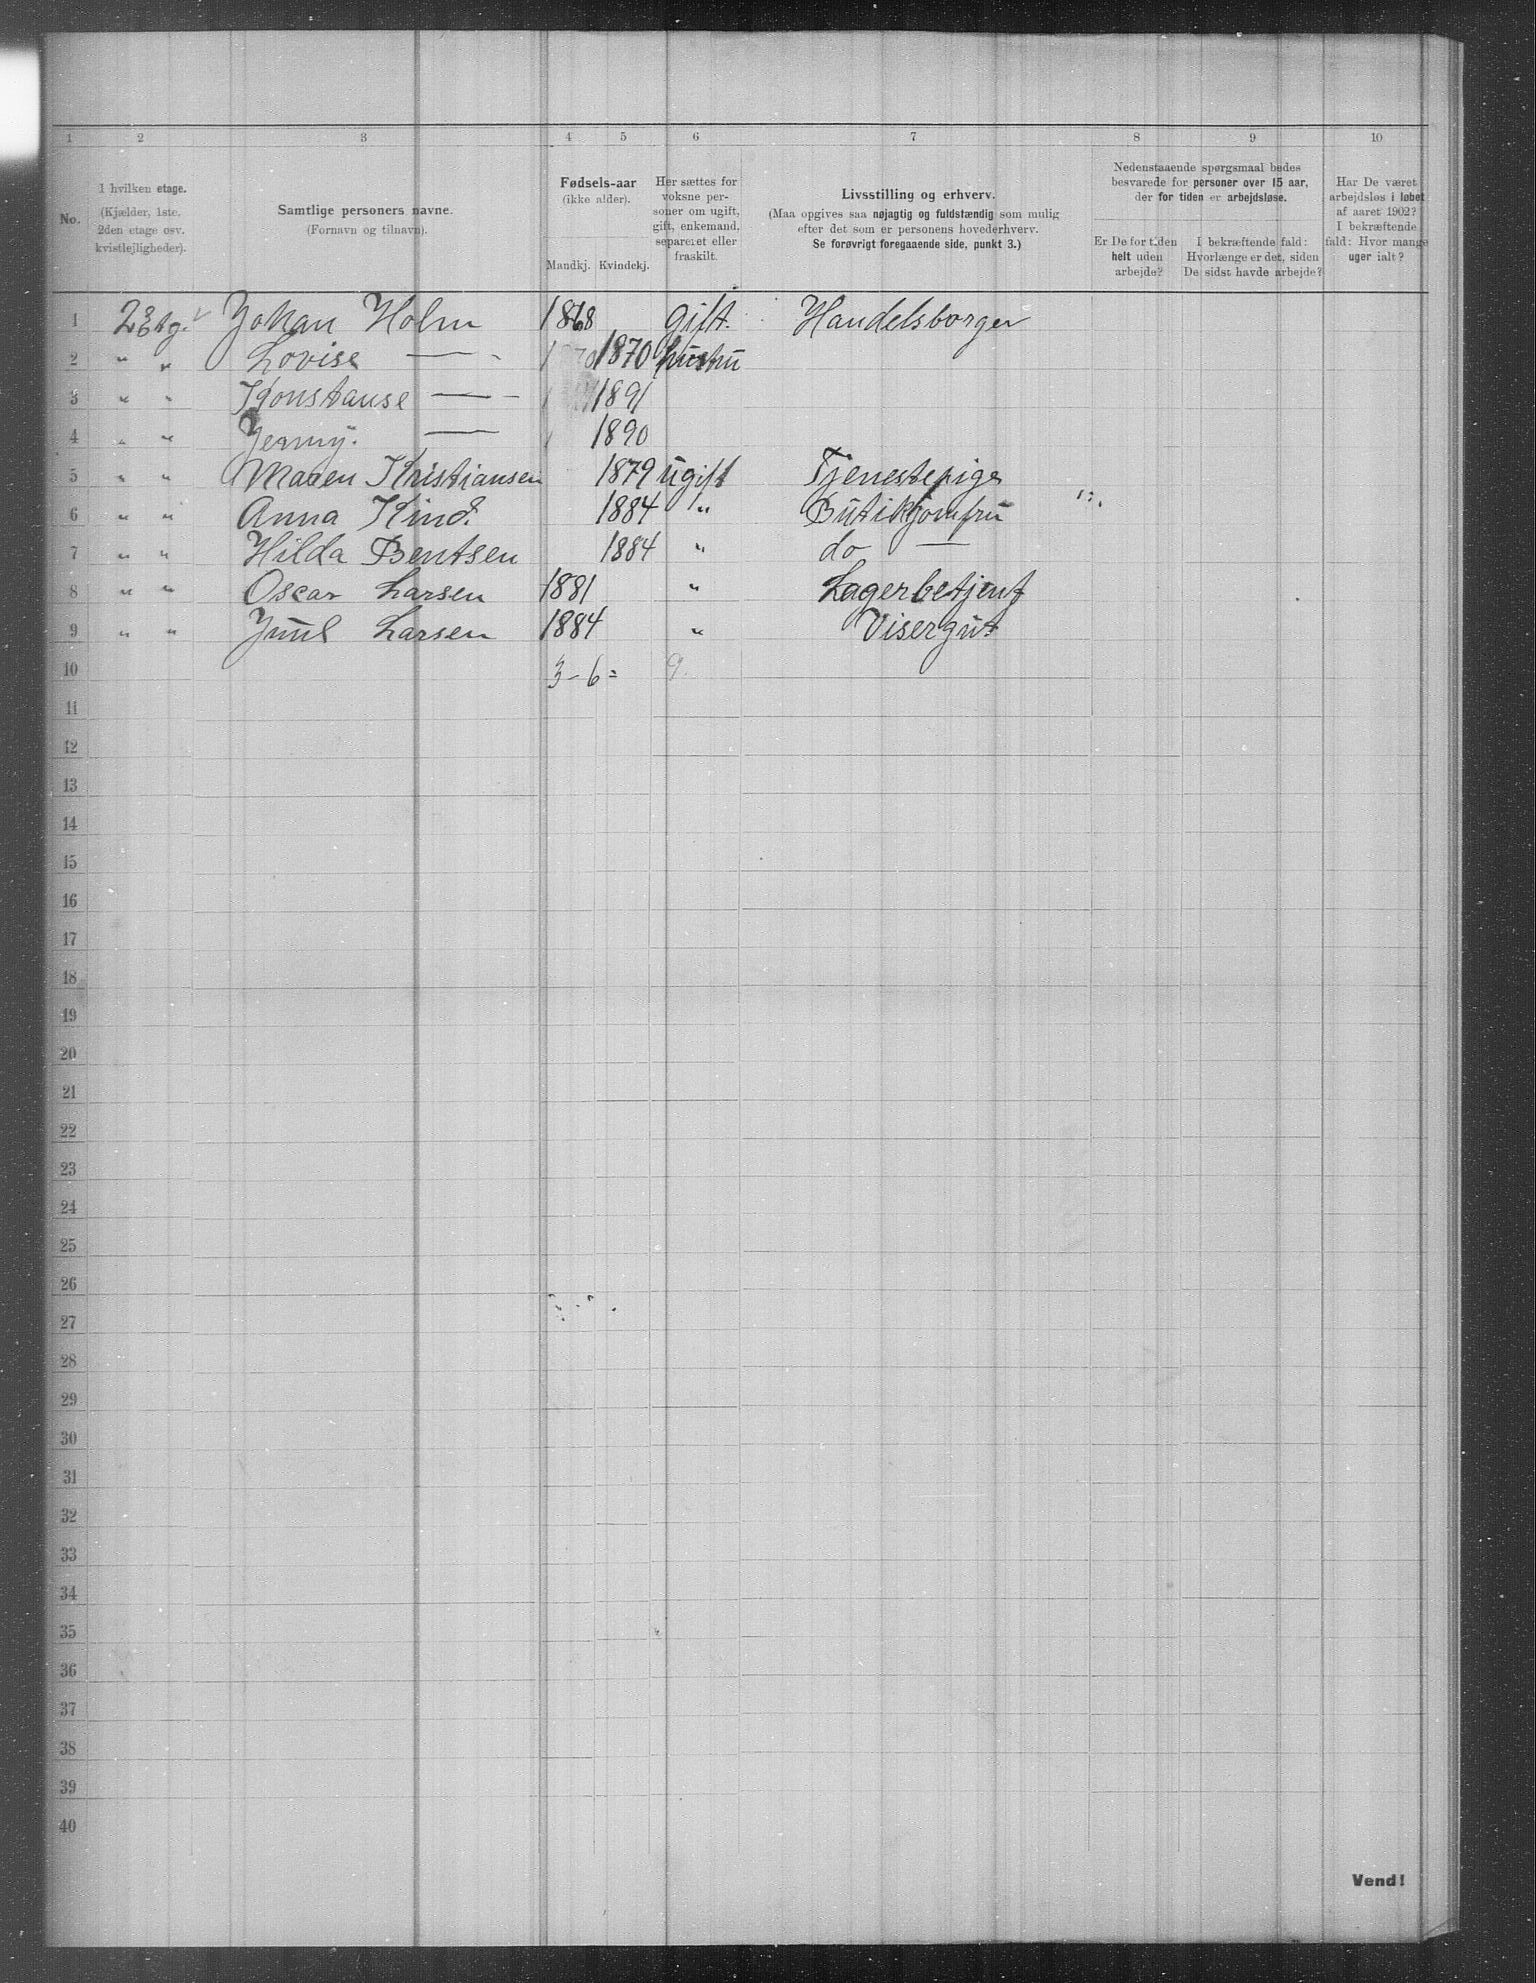 1 2 3 4 5 6 7 8 9 10
No.
I hvilken etage.
(Kjælder, 1ste,
2den etage osv.
kvistlejligheder).
Samtlige personers navne.
(Fornavn og tilnavn).
Fødsels-aar
(ikke alder).
Mandkj. Kvindekj.
Her sættes for
voksne per-
soner om ugift,
gift, enkemand,
separeret eller
fraskilt.
Livsstilling og erhverv.
(Maa opgives saa nøjagtig og fuldstændig som mulig
efter det som er personens hovederhverv.
Se forøvrigt foregaaende side, punkt 3.)
Nedenstaaende spørgsmaal bedes
besvarede for personer over 15 aar,
der for tiden er arbejdsløse.
Er De for tiden
helt uden
arbejde?
I bekræftende fald:
Hvorlænge er det, siden
De sidst havde arbejde?
Har De været
arbejdsløs i løbet
af aaret 1902?
I bekræftende
fald: Hvor mange
uger ialt?
1 Johan Holm 1868 gift. Handelsborger
2 " " Lovise — 1870 hustru
3 " " Konstanse — 1891
4 " " Jenny. — 1890
5 " " Maren Kristiansen 1879 ugift Tjenestepige
6 " " Anna Kind. 1884 " Butikjomfru
7 " " Hilda Bentsen 1884 " do —
8 " " Oscar Larsen 1881 " Lagerbetjent
9 " " Juul Larsen 1884 " Visergut
10 3 - 6 = 9.
11
12
13
14
15
16
17
18
19
20
21
22
23
24
25
26
27
28
29
30
31
32
33
34
35
36
37
38
39
40
Vend!